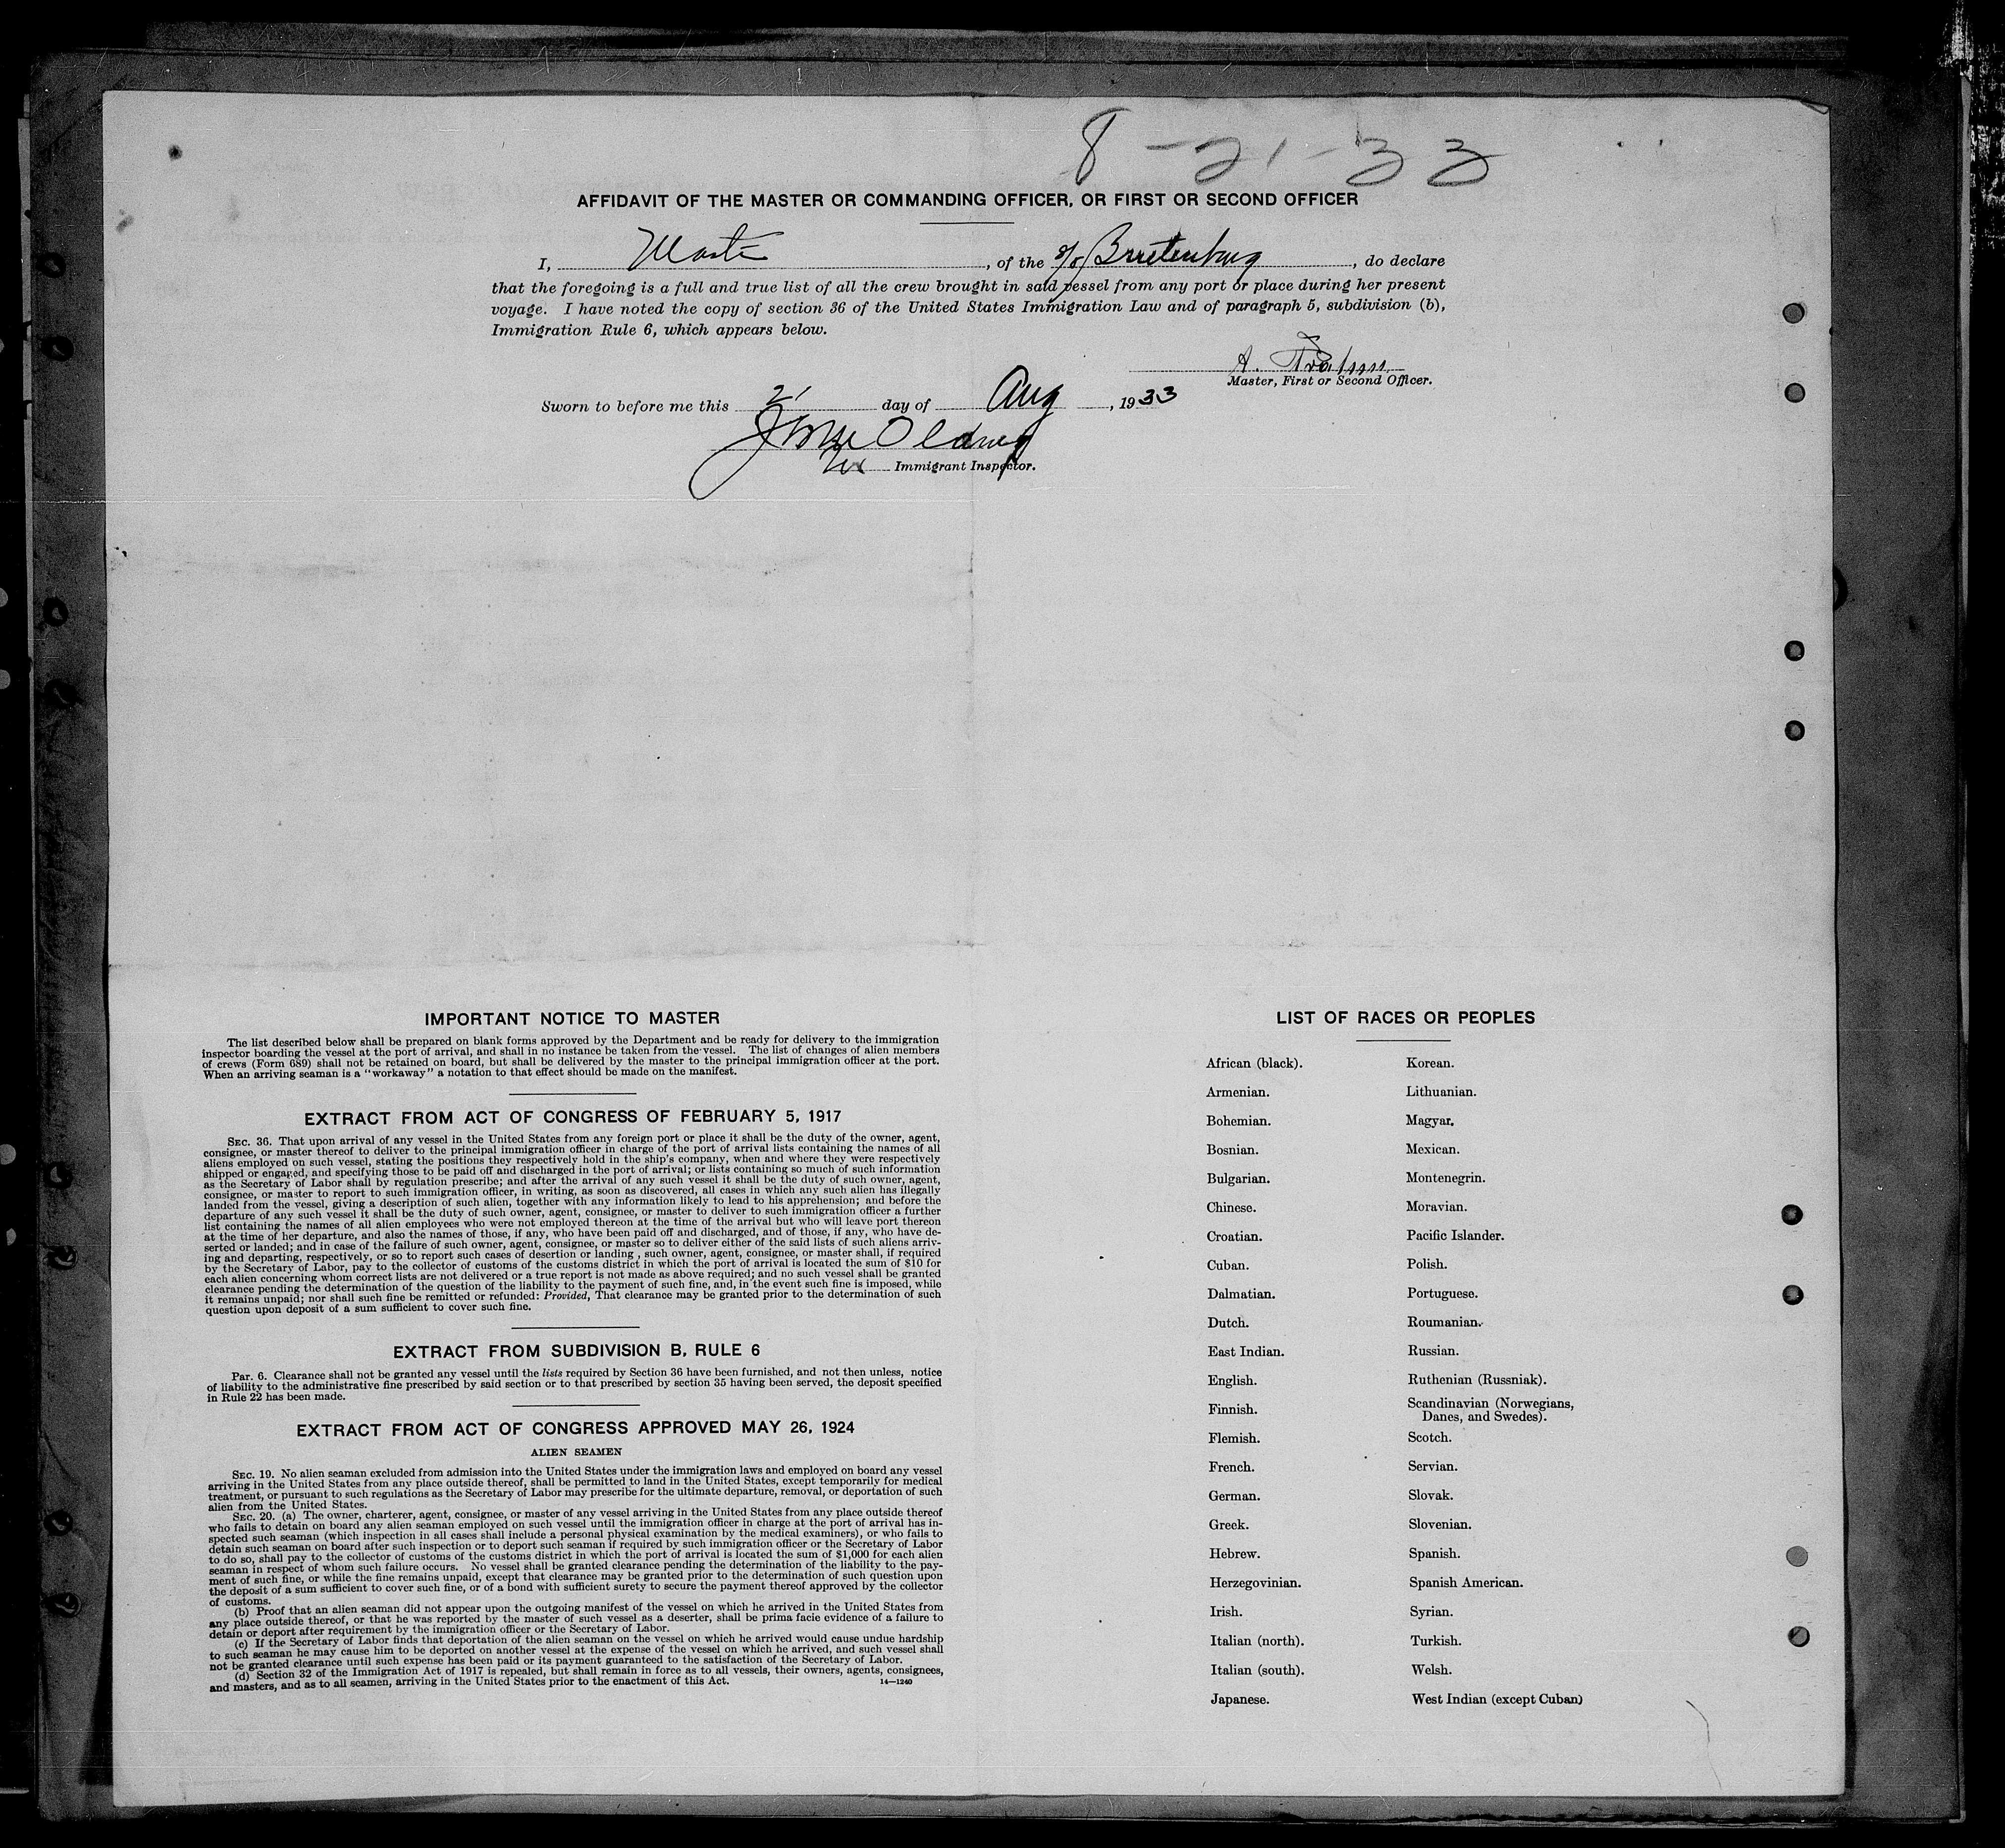 8-21-33
AFFIDAVIT OF THE MASTER OR COMMANDING OFFICER, OR FIRST OR SECOND OFFICER
I, Master, of the s/s, do declare
that the foregoing is a full and true list of all the crew brought in said vessel from any port or place during her present
voyage. I have noted the copy of section 36 of the United States Immigration Law and of paragraph 5, subdivision (b),
Immigration Rule 6, which appears below.
A.
Master, First or Second Officer.
Sworn to before me this 21 day of Aug, 1933
Immigrant Inspector.
IMPORTANT NOTICE TO MASTER
The list described below shall be prepared on blank forms approved by the Department and be ready for delivery to the immigration
inspector boarding the vessel at the port of arrival, and shall in no instance be taken from the vessel. The list of changes of alien members
of crews (Form 689) shall not be retained on board, but shall be delivered by the master to the principal immigration officer at the port.
When an arriving seaman is a "workaway" a notation to that effect should be made on the manifest.
EXTRACT FROM ACT OF CONGRESS OF FEBRUARY 5, 1917
SEC. 36. That upon arrival of any vessel in the United States from any foreign port or place it shall be the duty of the owner, agent,
consignee, or master thereof to deliver to the principal immigration officer in charge of the port of arrival lists containing the names of all
aliens employed on such vessel, stating the positions they respectively hold in the ship's company, when and where they were respectively
shipped or engaged, and specifying those to be paid off and discharged in the port of arrival; or lists containing so much of such information
as the Secretary of Labor shall by regulation prescribe; and after the arrival of any such vessel it shall be the duty of such owner, agent,
consignee, or master to report to such immigration officer, in writing, as soon as discovered, all cases in which any such alien has illegally
landed from the vessel, giving a description of such alien, together with any information likely to lead to his apprehension; and before the
departure of any such vessel it shall be the duty of such owner, agent, consignee, or master to deliver to such immigration officer a further
list containing the names of all alien employees who were not employed thereon at the time of the arrival but who will leave port thereon
at the time of her departure, and also the names of those, if any, who have been paid off and discharged, and of those, if any, who have de-
serted or landed; and in case of the failure of such owner, agent, consignee, or master so to deliver either of the said lists of such aliens arriv-
ing and departing, respectively, or so to report such cases of desertion or landing , such owner, agent, consignee, or master shall, if required
by the Secretary of Labor, pay to the collector of customs of the customs district in which the port of arrival is located the sum of $10 for
each alien concerning whom correct lists are not delivered or a true report is not made as above required; and no such vessel shall be granted
clearance pending the determination of the question of the liability to the payment of such fine, and, in the event such fine is imposed, while
it remains unpaid; nor shall such fine be remitted or refunded: Provided, That clearance may be granted prior to the determination of such
question upon deposit of a sum sufficient to cover such fine.
EXTRACT FROM SUBDIVISION B, RULE 6
Par. 6. Clearance shall not be granted any vessel until the lists required by Section 36 have been furnished, and not then unless, notice
of liability to the administrative fine prescribed by said section or to that prescribed by section 35 having been served, the deposit specified
in Rule 22 has been made.
EXTRACT FROM ACT OF CONGRESS APPROVED MAY 26, 1924
ALIEN SEAMEN
SEC. 19. No alien seaman excluded from admission into the United States under the immigration laws and employed on board any vessel
arriving in the United States from any place outside thereof, shall be permitted to land in the United States, except temporarily for medical
treatment, or pursuant to such regulations as the Secretary of Labor may prescribe for the ultimate departure, removal, or deportation of such
alien from the United States.
SEC. 20. (a) The owner, charterer, agent, consignee, or master of any vessel arriving in the United States from any place outside thereof
who fails to detain on board any alien seaman employed on such vessel until the immigration officer in charge at the port of arrival has in-
spected such seaman (which inspection in all cases shall include a personal physical examination by the medical examiners), or who fails to
detain such seaman on board after such inspection or to deport such seaman if required by such immigration officer or the Secretary of Labor
to do so, shall pay to the collector of customs of the customs district in which the port of arrival is located the sum of $1,000 for each alien
seaman in respect of whom such failure occurs. No vessel shall be granted clearance pending the determination of the liability to the pay-
ment of such fine, or while the fine remains unpaid, except that clearance may be granted prior to the determination of such question upon
the deposit of a sum sufficient to cover such fine, or of a bond with sufficient surety to secure the payment thereof approved by the collector
of customs.
(b) Proof that an alien seaman did not appear upon the outgoing manifest of the vessel on which he arrived in the United States from
any place outside thereof, or that he was reported by the master of such vessel as a deserter, shall be prima facie evidence of a failure to
detain or deport after requirement by the immigration officer or the Secretary of Labor.
(c) If the Secretary of Labor finds that deportation of the alien seaman on the vessel on which he arrived would cause undue hardship
to such seaman he may cause him to be deported on another vessel at the expense of the vessel on which he arrived, and such vessel shall
not be granted clearance until such expense has been paid or its payment guaranteed to the satisfaction of the Secretary of Labor.
(d) Section 32 of the Immigration Act of 1917 is repealed, but shall remain in force as to all vessels, their owners, agents, consignees,
and masters, and as to all seamen, arriving in the United States prior to the enactment of this Act. 14—1240
LIST OF RACES OR PEOPLES
African (black). Korean.
Armenian. Lithuanian.
Bohemian. Magyar.
Bosnian. Mexican.
Bulgarian. Montenegrin.
Chinese. Moravian.
Croatian. Pacific Islander.
Cuban. Polish.
Dalmatian. Portuguese.
Dutch. Roumanian.
East Indian. Russian.
English. Ruthenian (Russniak).
Finnish. Scandinavian (Norwegians,
Danes, and Swedes).
Flemish. Scotch.
French. Servian.
German. Slovak.
Greek. Slovenian.
Hebrew. Spanish.
Herzegovinian. Spanish American.
Irish. Syrian.
Italian (north). Turkish.
Italian (south). Welsh.
Japanese. West Indian (except Cuban)